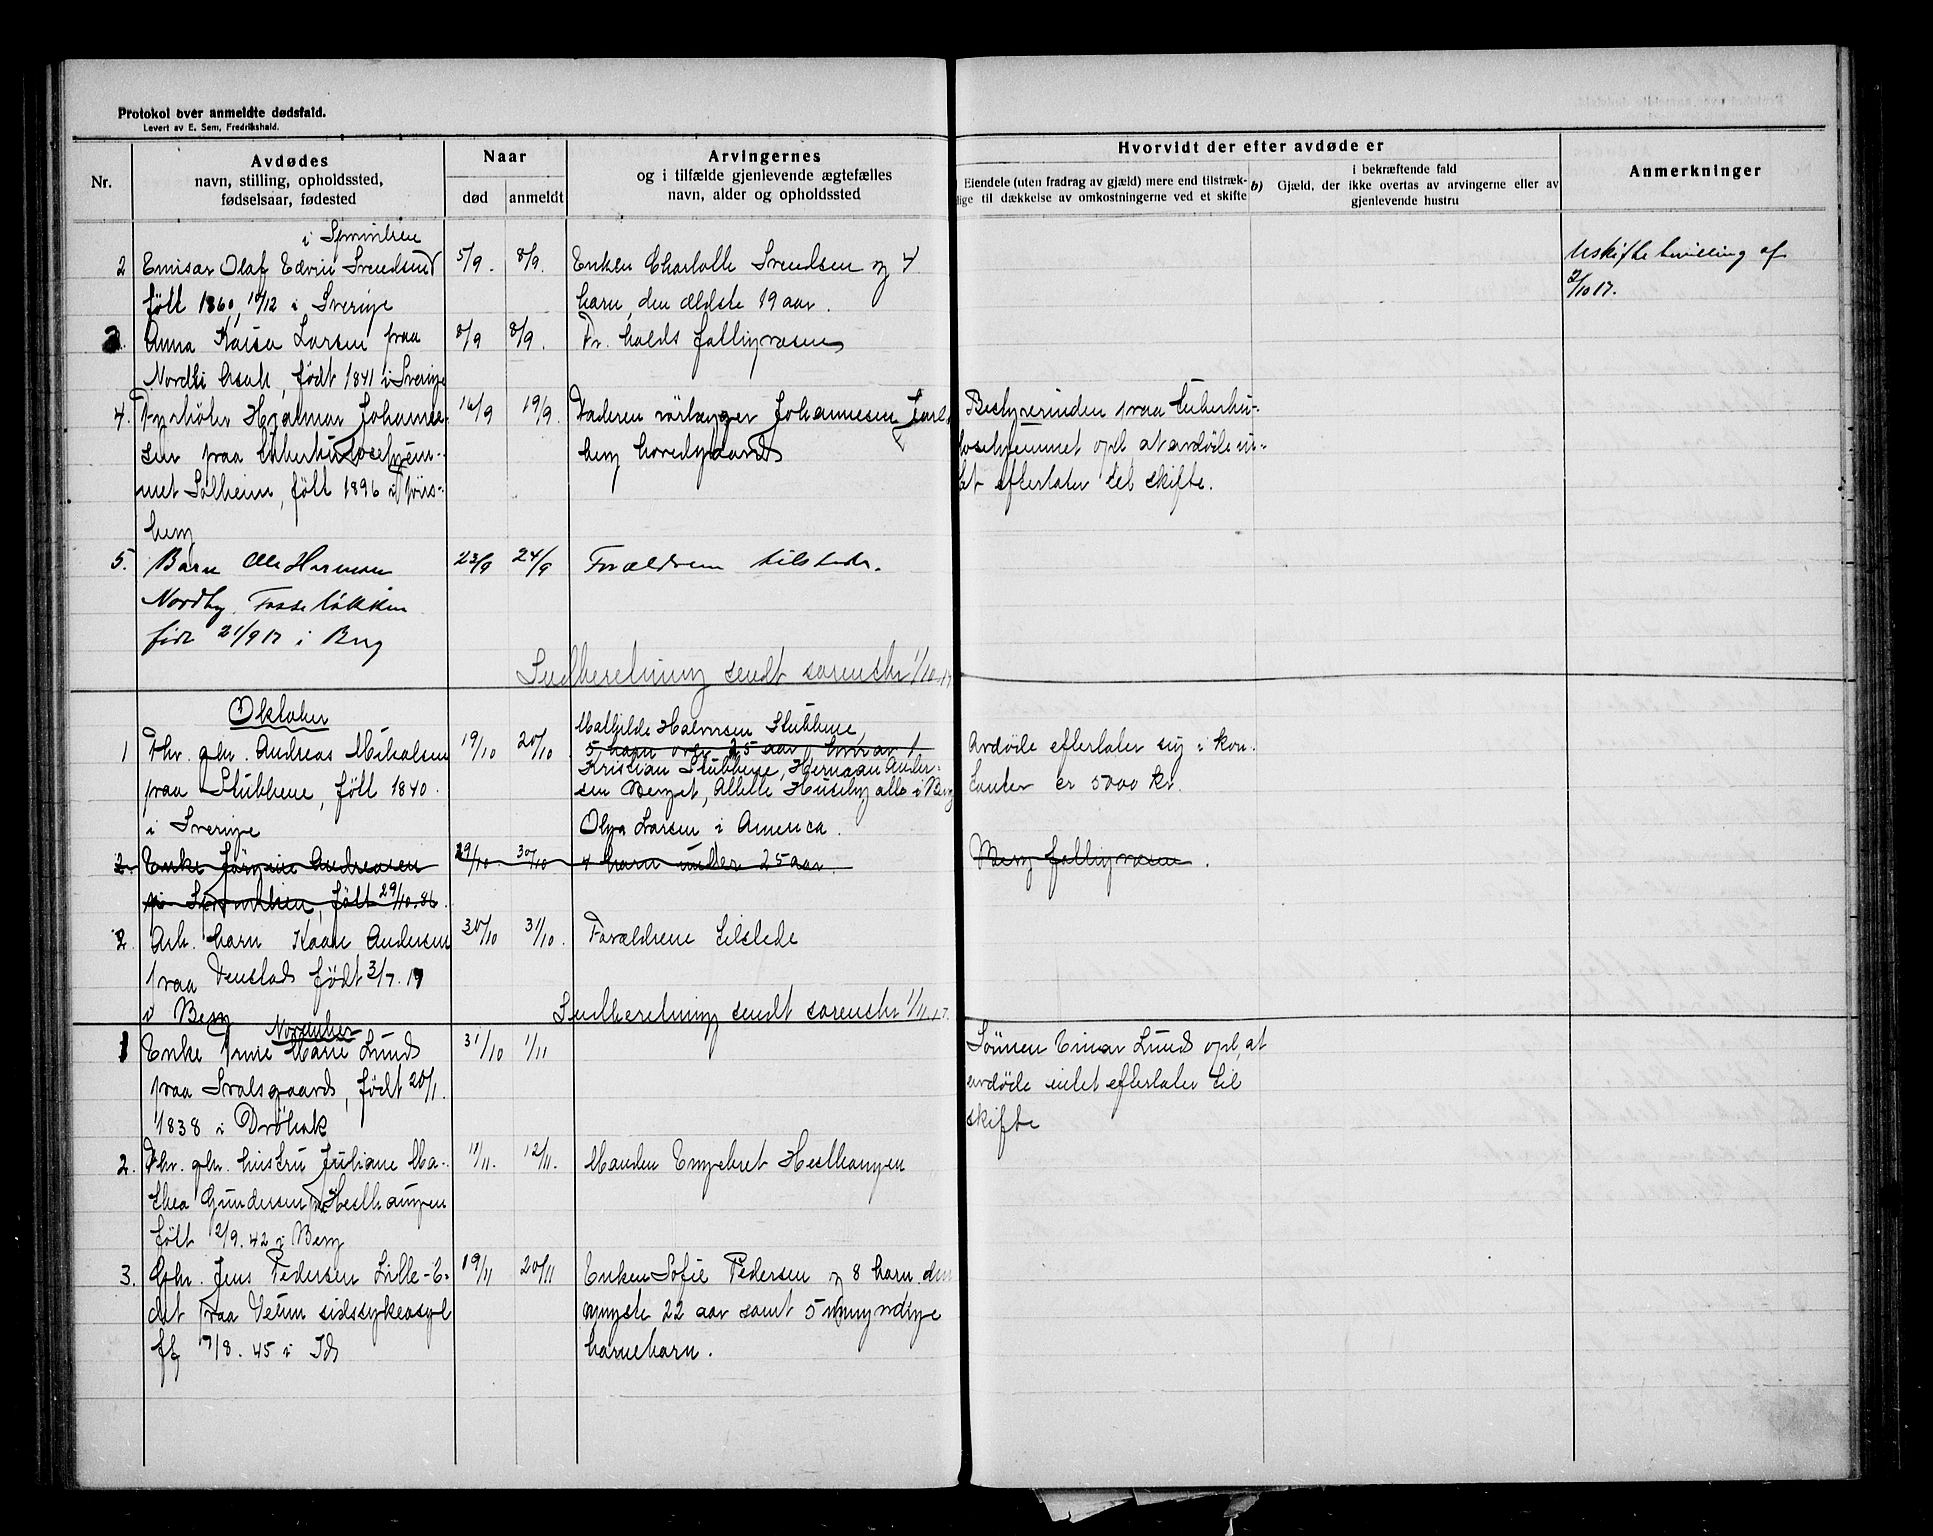 Protokol over anmeldte dødsfald.
Levert av E. Sem, Fredrikshald.
Nr.
Avdødes
navn, stilling, opholdssted,
fødselsaar, fødested
Naar
død
anmeldt
Arvingernes
og i tilfælde gjenlevende ægtefælles
navn, alder og opholdssted
Hvorvidt der efter avdøde er
Eiendele (uten fradrag av gjæld) mere end tilstræk-
lige til dækkelse av omkostningerne ved et skifte
b)
i bekræftende fald
Gjæld, der ikke overtas av arvingerne eller av
gjenlevende hustru
Anmerkninger
2
Olaf Edvin Svendsen
født 1860, 10/12 i Sverige
5/9.
8/9.
Enken Charlotte Svendsen og 4
barn, den ældste 19 aar.
Uskiftebevilling af
2/10 17.
3.
Anna Kaisa Larsen fraa
Nordli Asak, født 1841 i Sverige
8/9
8/9.
Fr.halds fattigvæsen
4.
Fyrbøter Hjalmar Johanne-
sen fraa tuberkulosehjem-
met Solheim, født 1896 i Töns-
berg
16/9
19/9.
Faderen Johannesen Jarls-
berg hovedgaard
Bestyrerinden fraa tuberku-
losehjemmet opl. at avdöde in-
tet efterlater til skifte.
5.
Barn Ole Herman
Nordby, Fosseløkken
født 21/9 17 i Berg
23/9
24/9
Forældrene tilstede.
Indberetning sendt sorenskr 1/10 17
Oktober
1
Fhv. gbr. Andreas Mikalsen
fraa Stubbene, født 1840.
i Sverige
19/10
20/10
Mathilde Halvorsen Stubbene,
5 barn over 25 aar, hvorav 1
Kristian Stubbene, Herman Ander-
sen Berget, Huseby alle i Berg
Olga Larsen i Amerika.
Avdöde efterlater sig i kon-
tanter er 5000 kr.
2.
Enke Jørgine Andreasen
født 29/10.86.
29/10
30/10
4 barn under 25 aar.
Berg fattigvæsen.
2.
Arb. barn Kaare Andersen
fraa Venstad født 3/7.17
i Berg
30/10
31/10.
Forældrene tilstede
Indberetning sendt sorenskr 1/11.17.
November
1
Enke Marie Lund
fraa Svalsgaard, født 20/1.
1838 i Dröbak
31/10
1/11
Sönnen Einar Lund opl, at
avdöde intet efterlater til
skifte
2.
Fhv. gbr. hustru Juliane Ma-
thea Gundersen fraa Hesthaugen
født 12/9.42 i Berg
11/11.
12/11.
Manden Engebret Hesthaugen
3.
Gbr. Jens Pedersen Lille-E-
det fraa Veum sidssykeasyl
ff 7/8. 45 i Id
19/11
20/11
Enken Sofie Pedersen og 8 barn den
yngste 22 aar samt 5 umyndige
barnebarn.